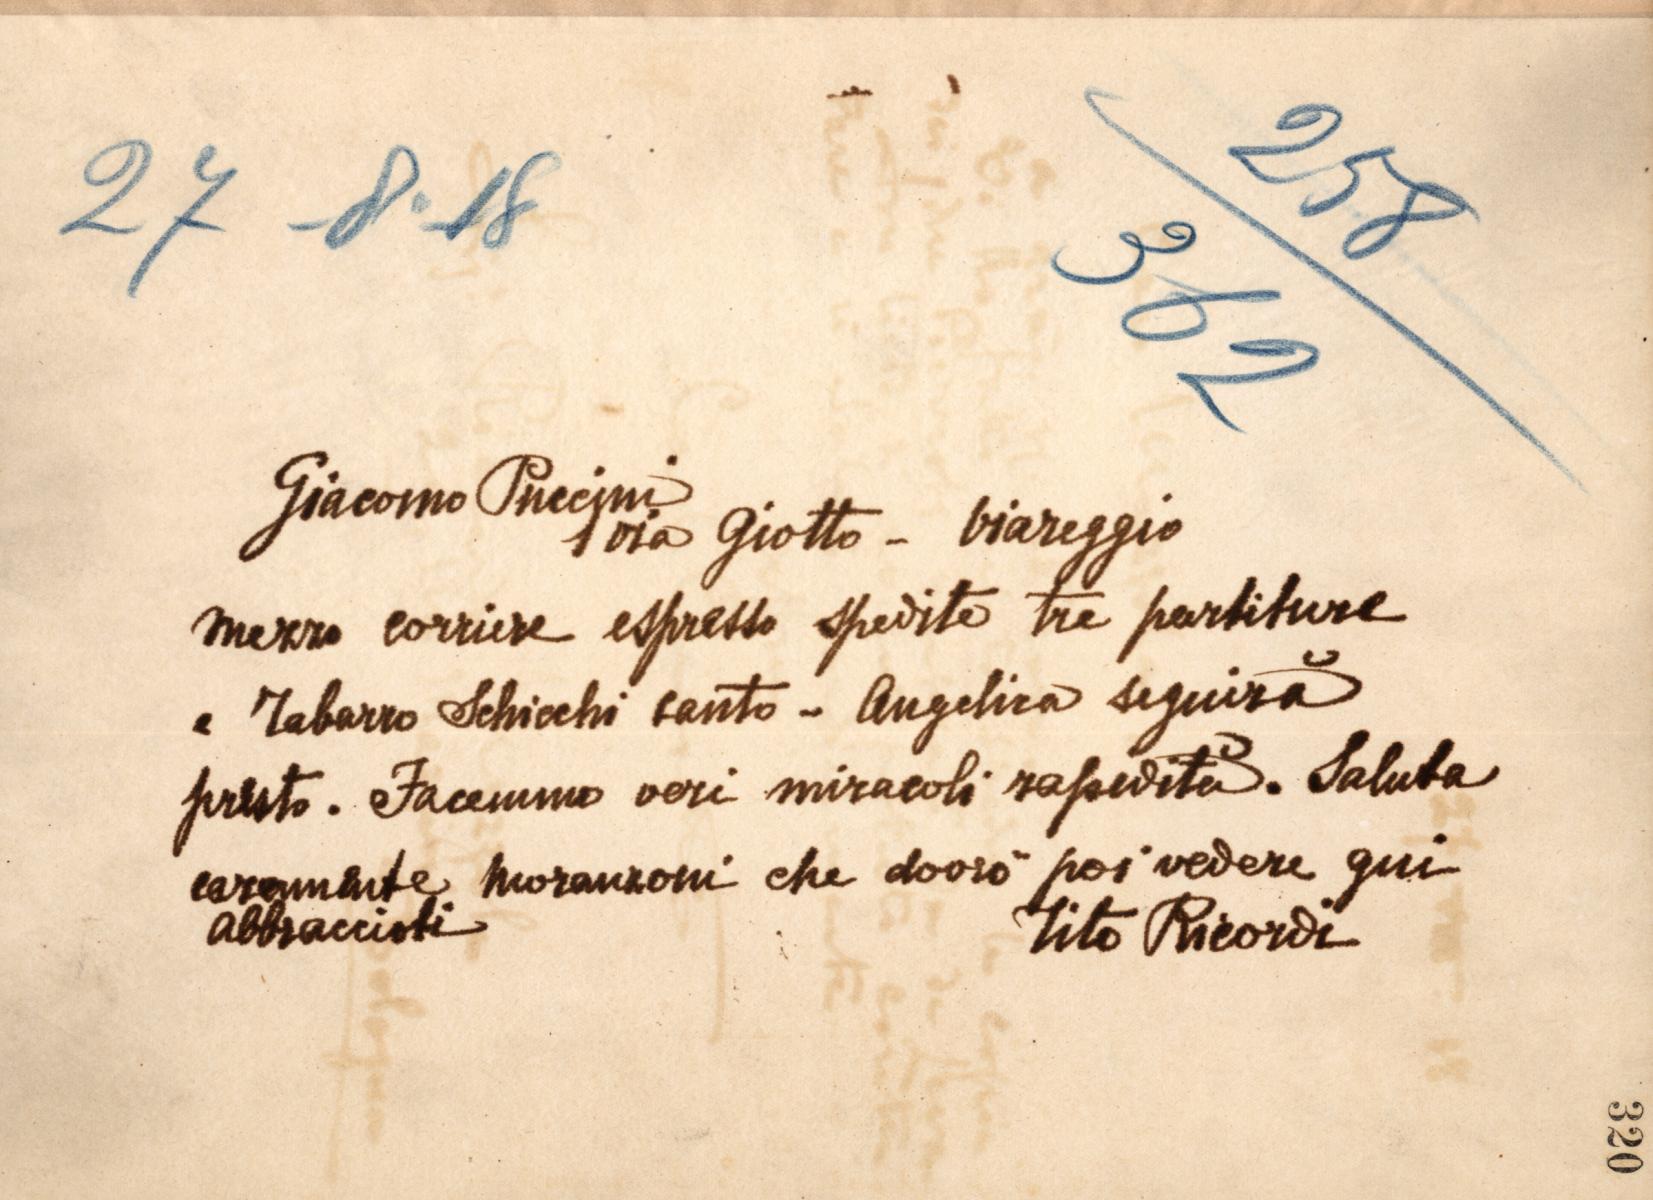 27-8-18
258
362
Giacomo Puccini
via Giotto - Viareggio
mezzo corriere espresso spedite tre partiture
e Tabarro Schicchi canto - Angelica seguirà
presto. Facemmo veri miracoli rapidità. Saluta
caramente Moranzoni che dovrò poi vedere qui
Abbraccioti Tito Ricordi
320